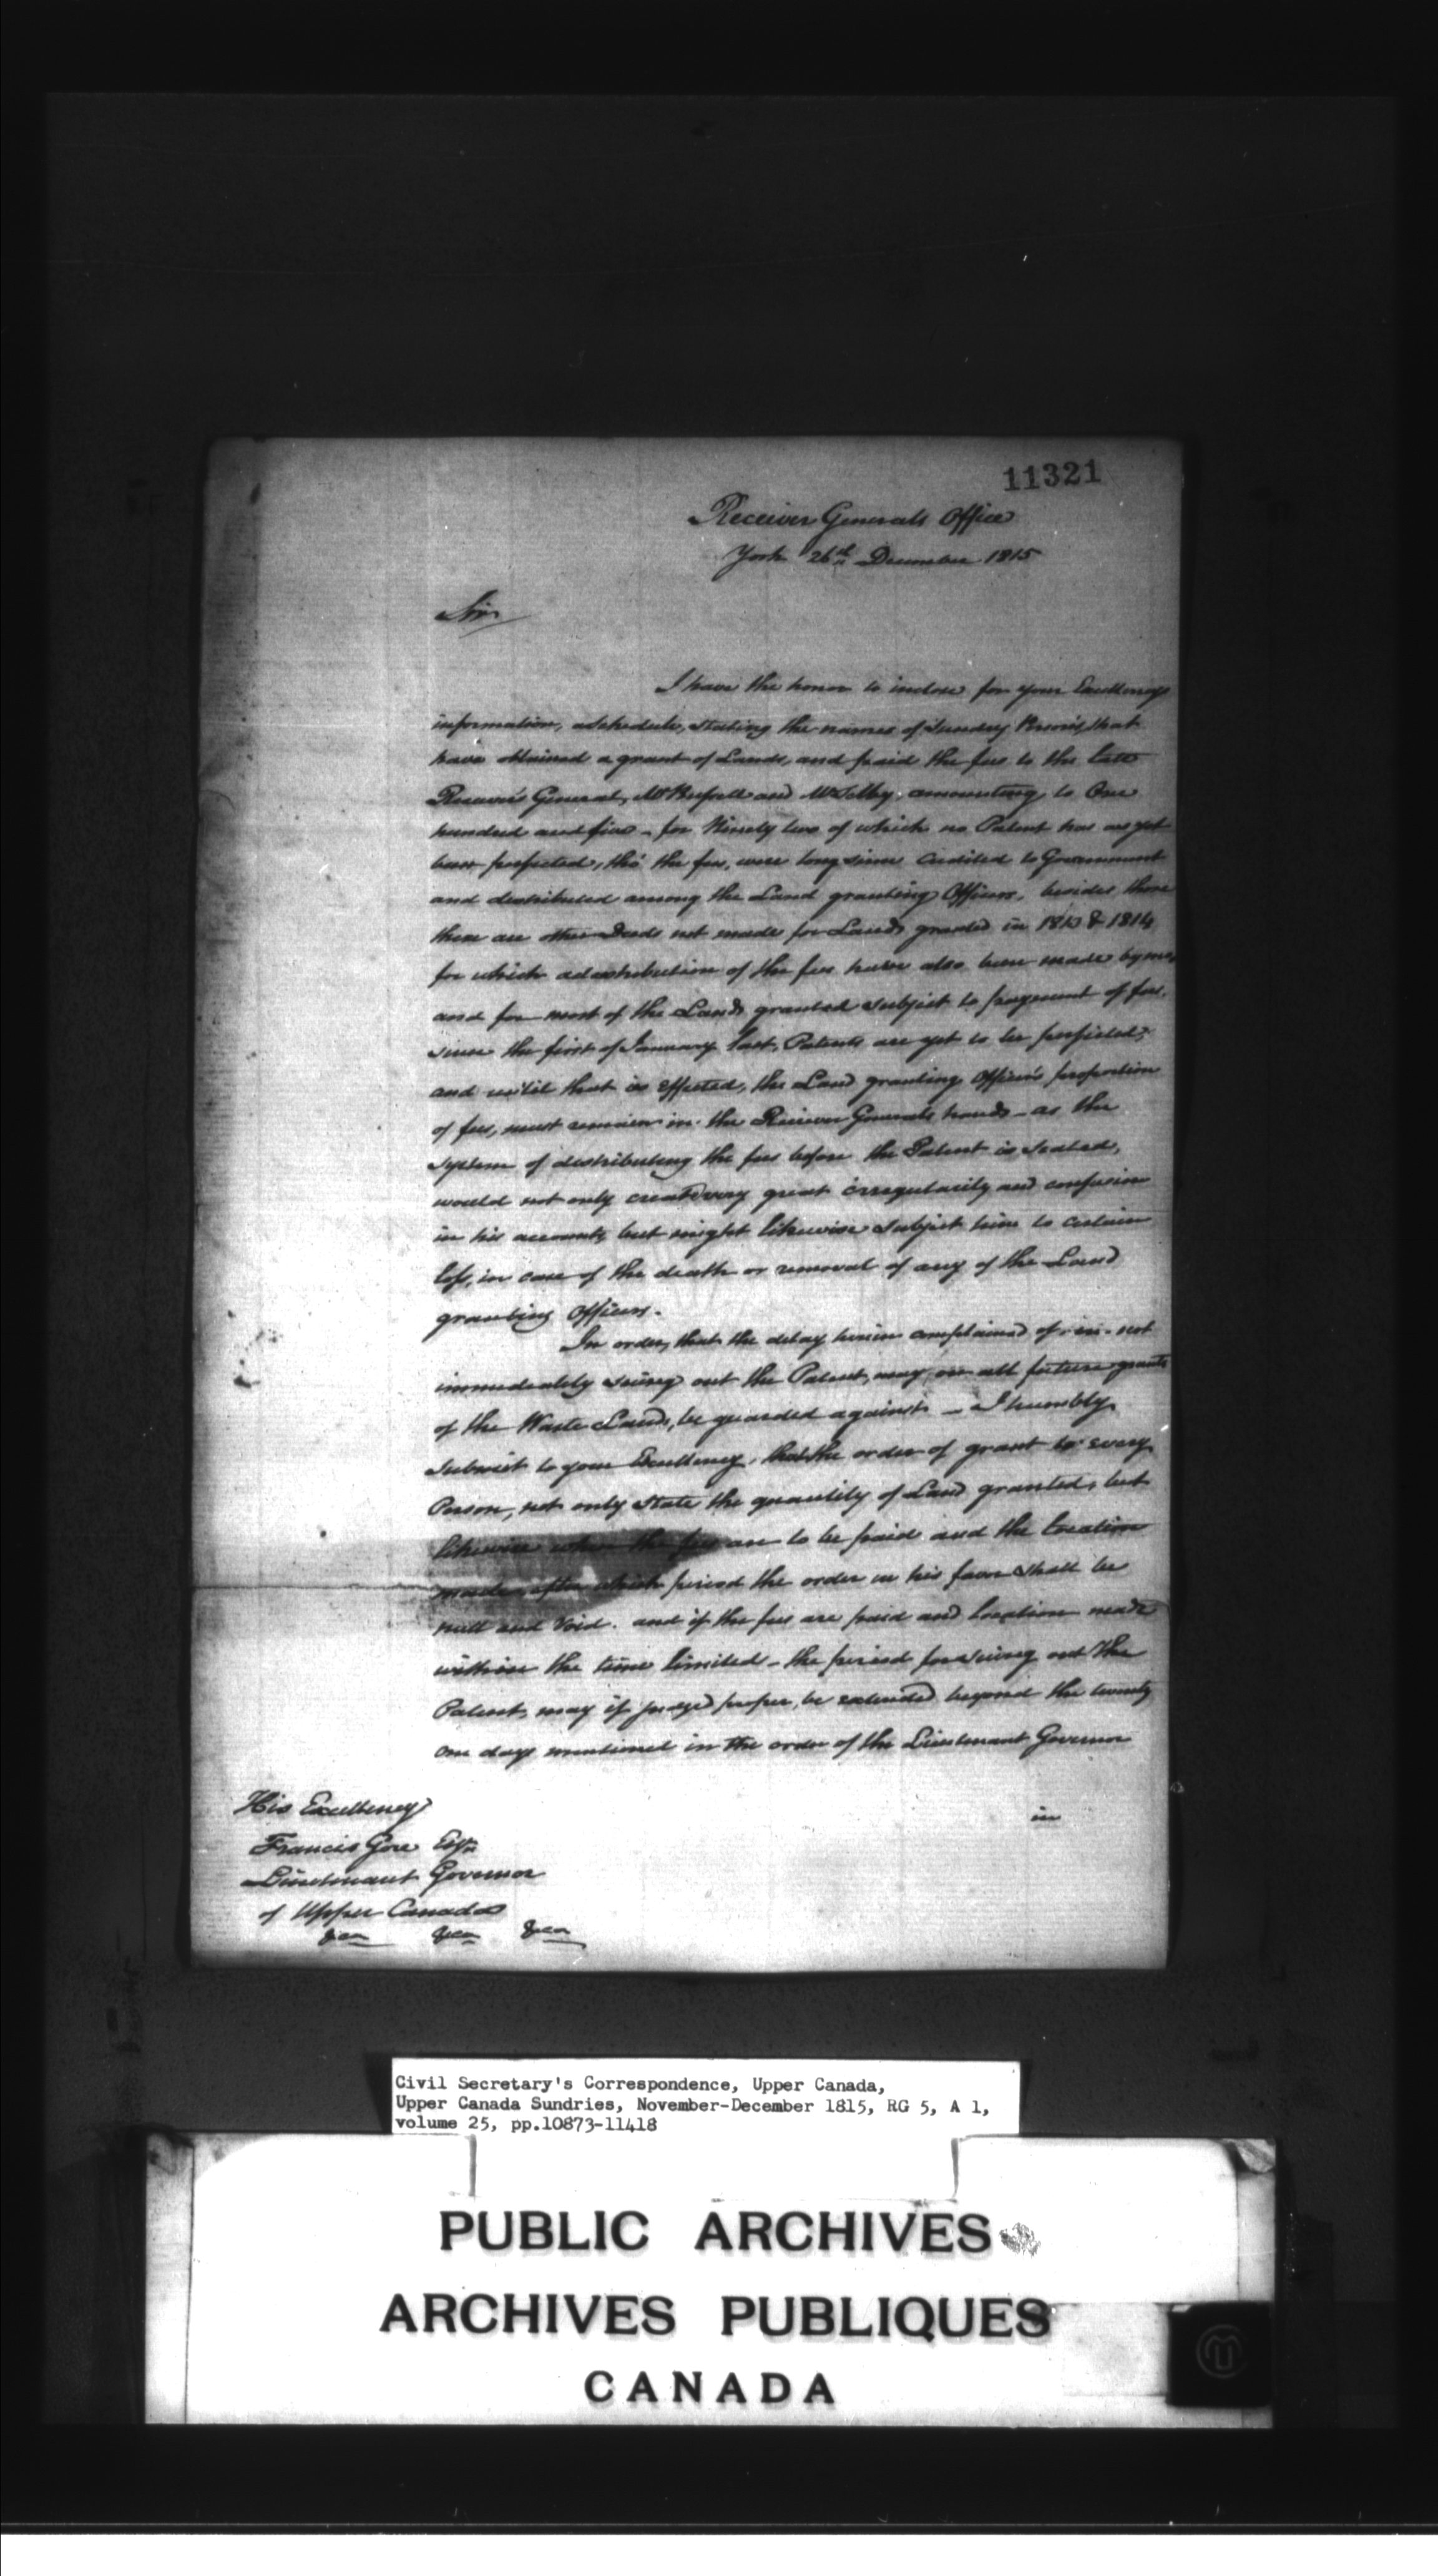 11321
Receiver Generals Office
York 26th December 1815
Sir
I have the honor to inclose for your Excellencys
information, a schedule, stating the names of Sundry Persons, that
have obtained a grant of Lands, and paid the fees to the late
Receivers General, Mr Russell and Mr Selby, amounting to One
hundred and five - for Ninety two of which no Patent has as yet
been perfected, tho' the fees, were long since credited to Government
and distributed among the Land granting Officers, besides these
there are other Deeds not made for Lands granted in 1813 & 1814
for which a distribution of the fees have also been made by me,
and for most of the Lands granted subject to payment of fees,
since the first of January last, Patents are yet to be perfected;
and until that is effected, the Land granting Officers proportion
of fees, must remain in the Receiver Generals hands - as the
system of distributing the fees before the Patent is sealed,
would not only create very great irregularity and confusion
in his accounts, but might likewise subject him to certain
loss, in case of the death or removal of any of the Land
granting Officers.
In order, that the delay herein complained of in not
immediately suing out the Patent, may, in all future grants
of the Waste Lands, be guarded against - I humbly
submit to your Excellency, that the order of grant to every
Person, not only state the quantity of Land granted, but
likewise when the fees are to be paid and the location
made, after which period the order in his favor shall be
null and void. and if the fees are paid and location made
within the time limited - the period for suing out the
Patent, may if judged proper, be extended beyond the twenty
one days mentioned in the order of the Lieutenant Governor
in
His Excellency
Francis Gore Esqr
Lieutenant Governor
of Upper Canada
&ca &ca &ca
Civil Secretary's Correspondence, Upper Canada,
Upper Canada Sundries, November-December 1815, RG 5, A 1,
volume 25, pp.10873-11418
PUBLIC ARCHIVES
ARCHIVES PUBLIQUES
CANADA